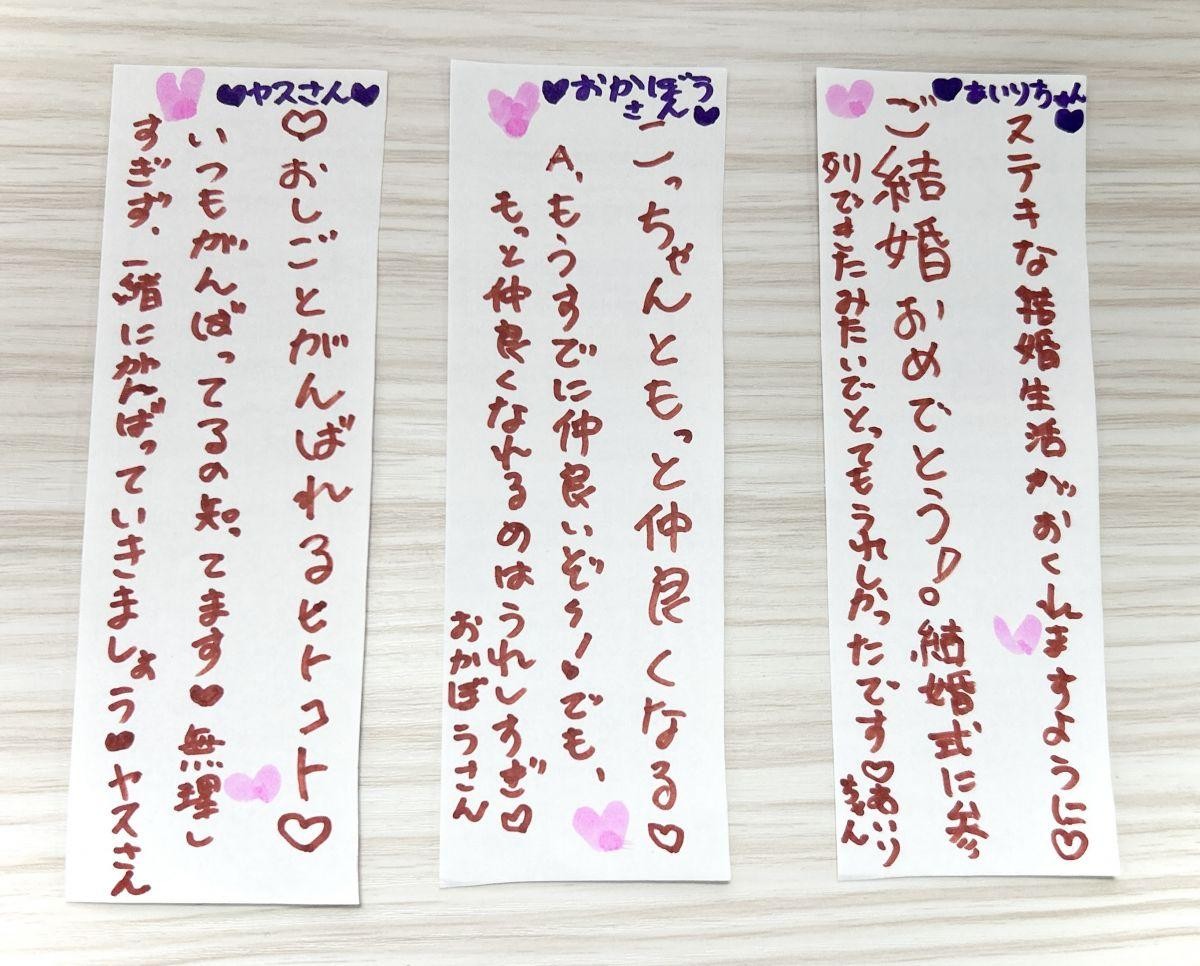 ♥あいりちゃん♥
ステキな結婚生活がおくれますように♡
ご結婚おめでとう!。結婚式に参
列できたみたいでとってもうれしかったです♡あいり
ちゃん
♥おかぼう
さん♥
こっちゃんともっと仲良くなる♡
A,もうすでに仲良いぞ〜!♥でも、
もっと仲良くなれるのはうれしすぎ♡
おかぼうさん
♥ヤスさん♥
♡おしごとがんばれるヒトコト♡
いつもがんばってるの知ってます♥無理し
すぎず、一緒にがんばっていきましょう♥ヤスさん